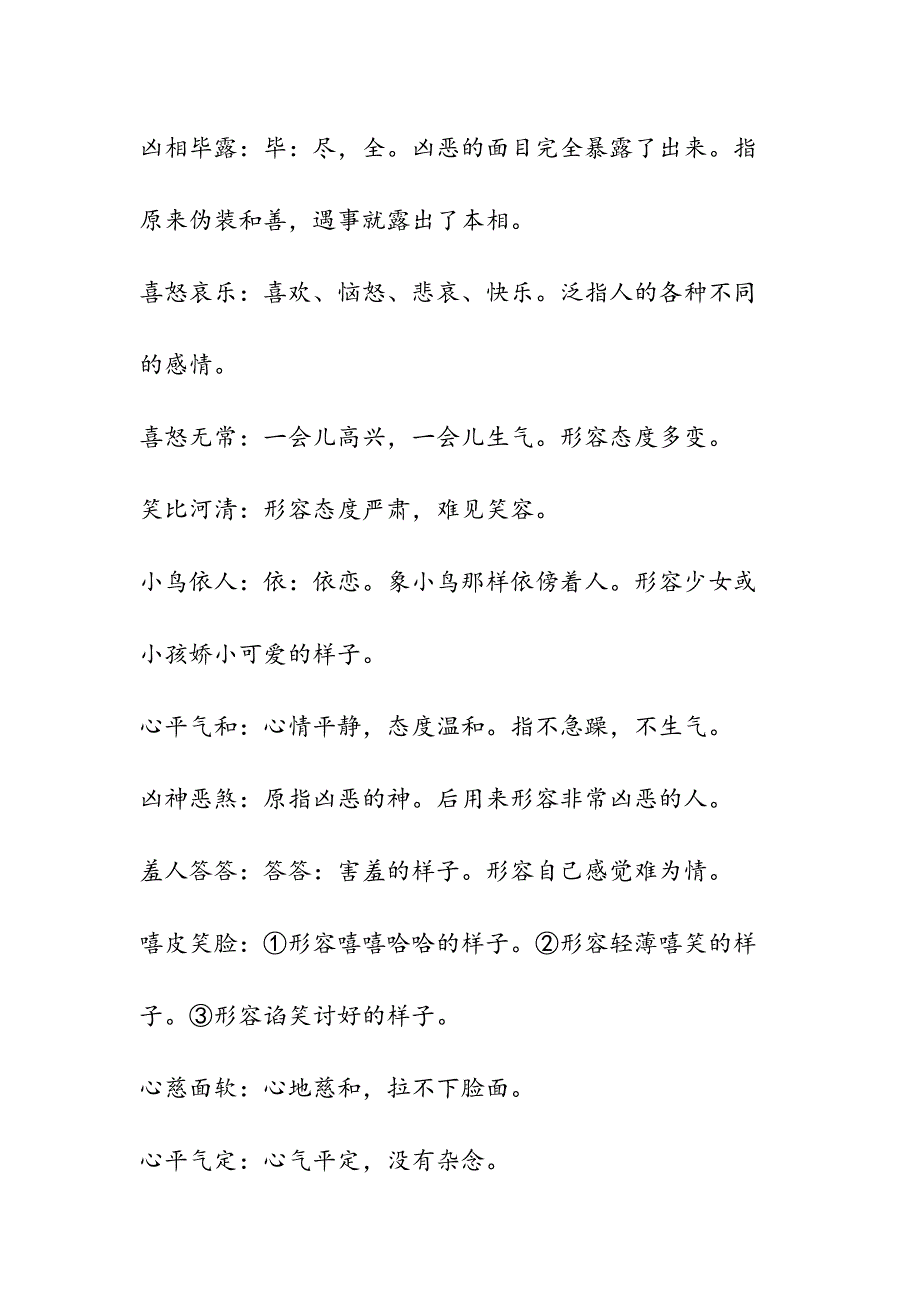 凶相毕露：毕：尽，全。凶恶的面目完全暴露了出来。指
原来伪装和善，遇事就露出了本相。
喜怒哀乐：喜欢、恼怒、悲哀、快乐。泛指人的各种不同
的感情。
喜怒无常：一会儿高兴，一会儿生气。形容态度多变。
笑比河清：形容态度严肃，难见笑容。
小鸟依人：依：依恋。象小鸟那样依傍着人。形容少女或
小孩娇小可爱的样子。
心平气和：心情平静，态度温和。指不急躁，不生气。
凶神恶煞：原指凶恶的神。后用来形容非常凶恶的人。
羞人答答：答答：害羞的样子。形容自己感觉难为情。
嘻皮笑脸：①形容嘻嘻哈哈的样子。②形容轻薄嘻笑的样
子。③形容谄笑讨好的样子。
心慈面软：心地慈和，拉不下脸面。
心平气定：心气平定，没有杂念。